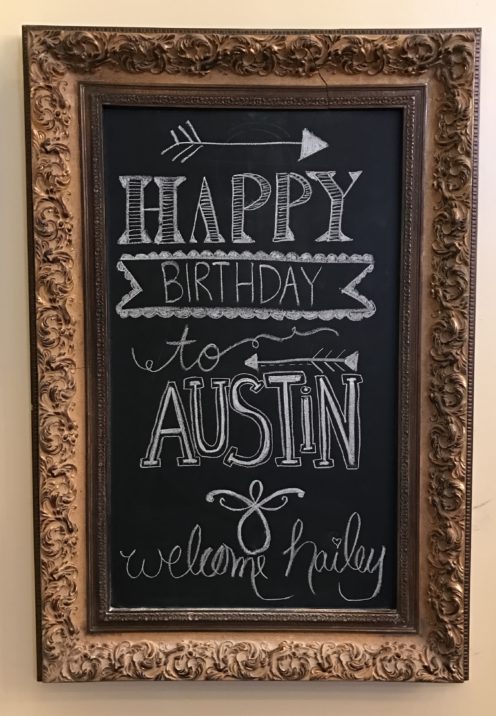 HAPPY
BIRTHDAY
to
AUSTiN
welcome hailey